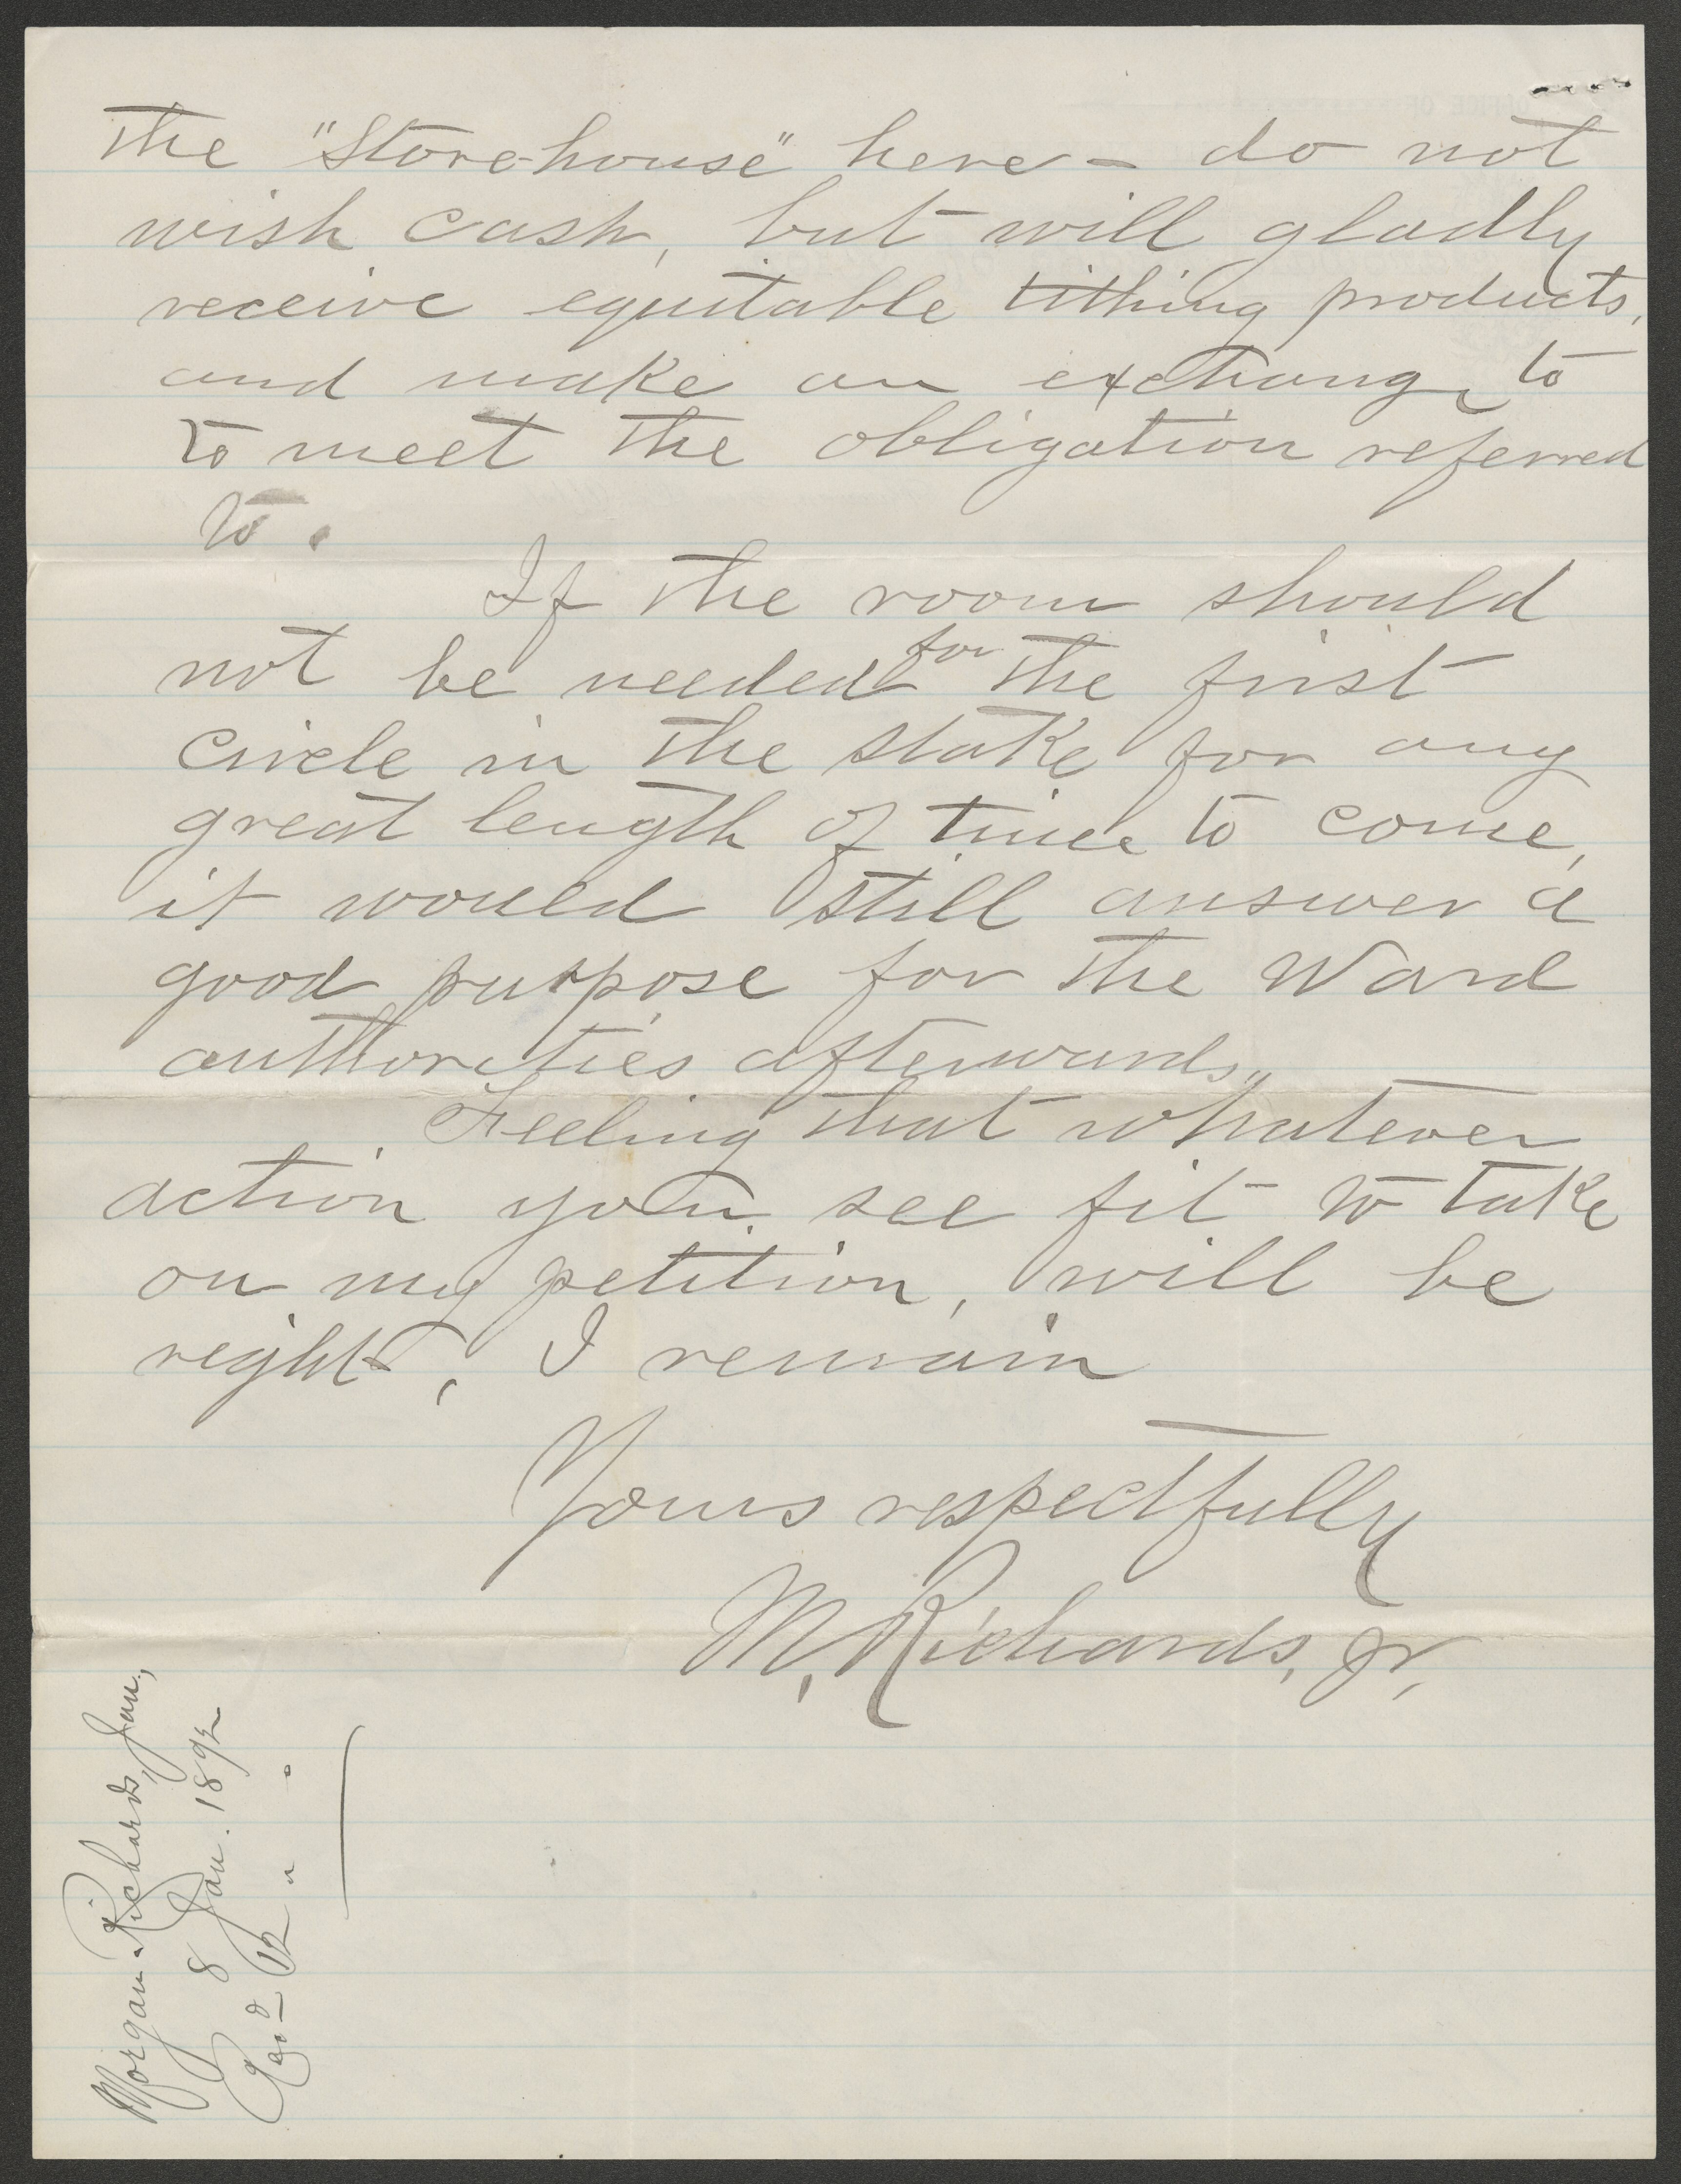 the "Store-house" here - do not
wish cash, but will gladly
receive equitable tithing products,
and make an exchange to
to meet the obligation referred
to.
If the room should
not be needed for the first
circle in the stake for any
great length of time to come,
it would still answer a
good purpose for the Ward
authorities afterwards.
Feeling that whatever
action you see fit to take
on my petition, will be
right, I remain
Yours respectfully
M. Richards, Jr,
Morgan Richards, Jun,
8 Jan. 1892
Rec'd 12 " "